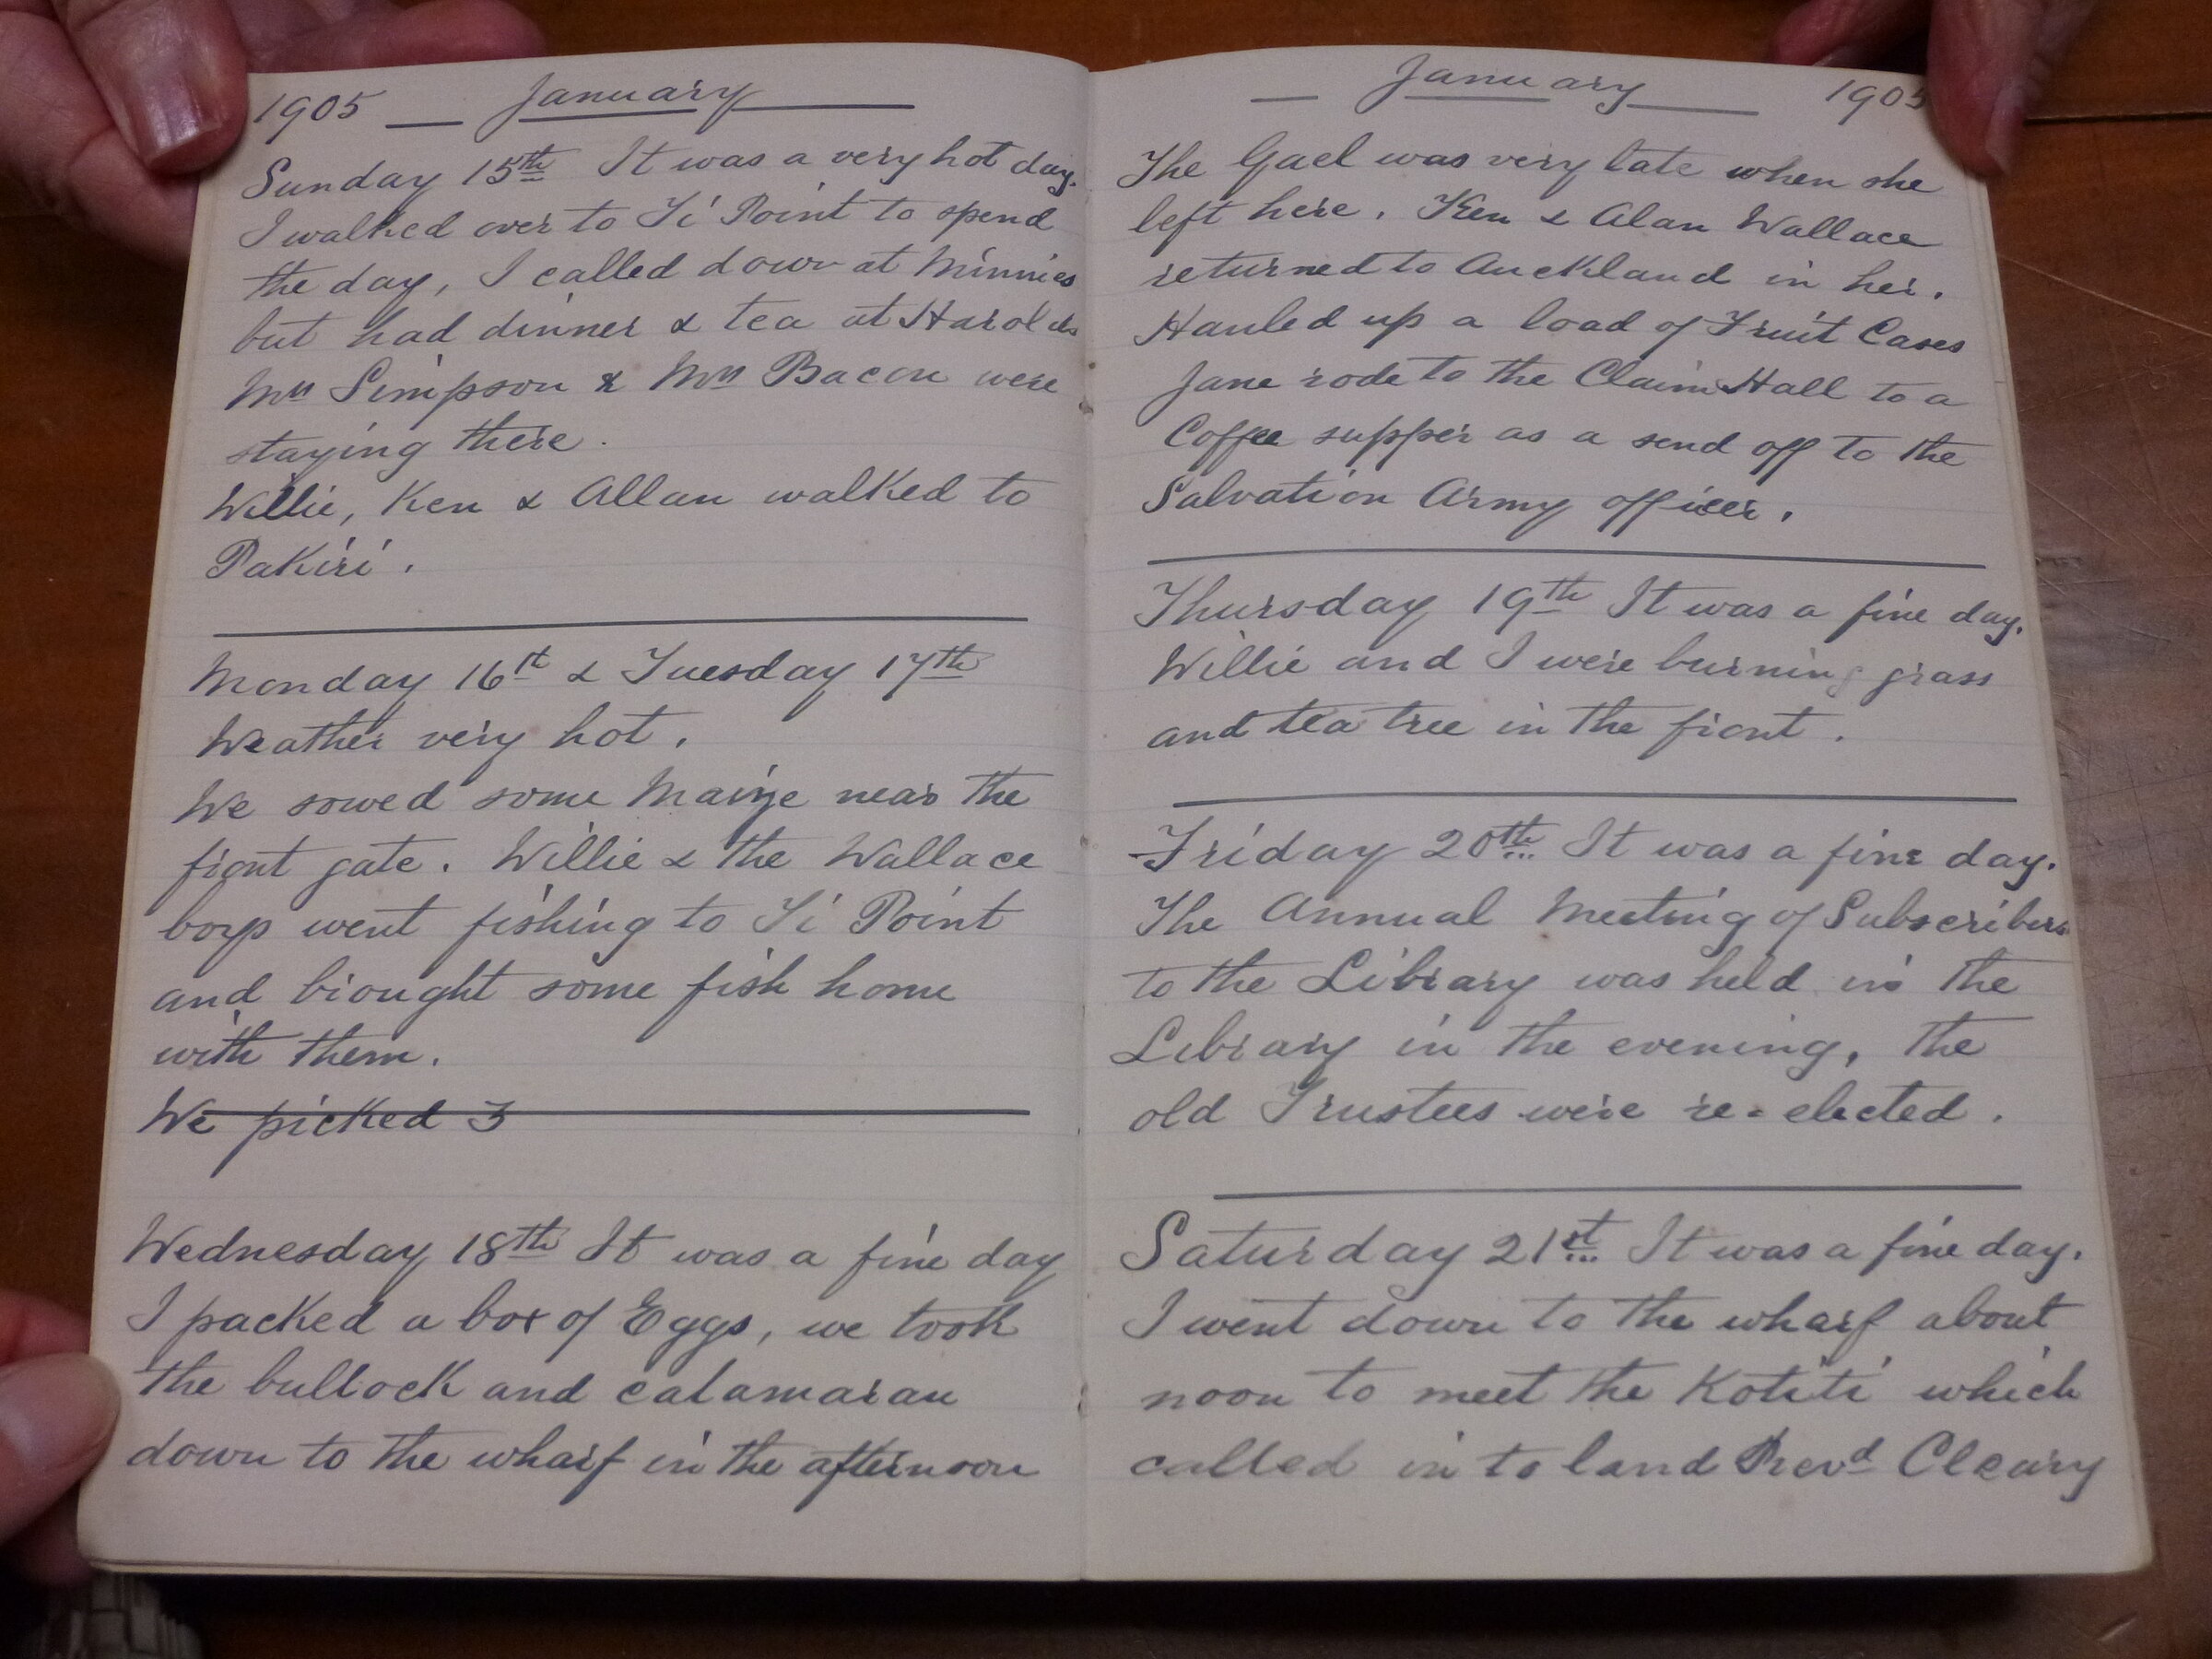 1905 — January
Sunday 15th It was a very hot day.
I walked over to Ti Point to spend
the day, I called down at Minnies
but had dinner & tea at Harolds
Mrs Simpson & Mrs Bacon were
staying there.
Willie, Ken & Allan walked to
Pakiri.
Monday 16th & Tuesday 17th
Weather very hot.
We sowed some Maize near the
front gate. Willie & the Wallace
boys went fishing to Ti Point
and brought some fish home
with them.
We picked 3
Wednesday 18th It was a fine day
I packed a box of Eggs, we took
the bullock and catamaran
down to the wharf in the afternoon
— January 1905
The Gael was very late when she
left here. Ken & Alan Wallace
returned to Auckland in her.
Hauled up a load of Fruit Cases
Jane rode to the Claim Hall to a
Coffee supper as a send off to the
Salvation Army officer.
Thursday 19th It was a fine day.
Willie and I were burning grass
and tea tree in the front.
Friday 20th It was a fine day.
The Annual Meeting of Subscribers
to the Library was held in the
Library in the evening, the
old Trustees were re-elected.
Saturday 21st It was a fine day.
I went down to the wharf about
noon to meet the Kotiti which
called in to land Revd Cleary